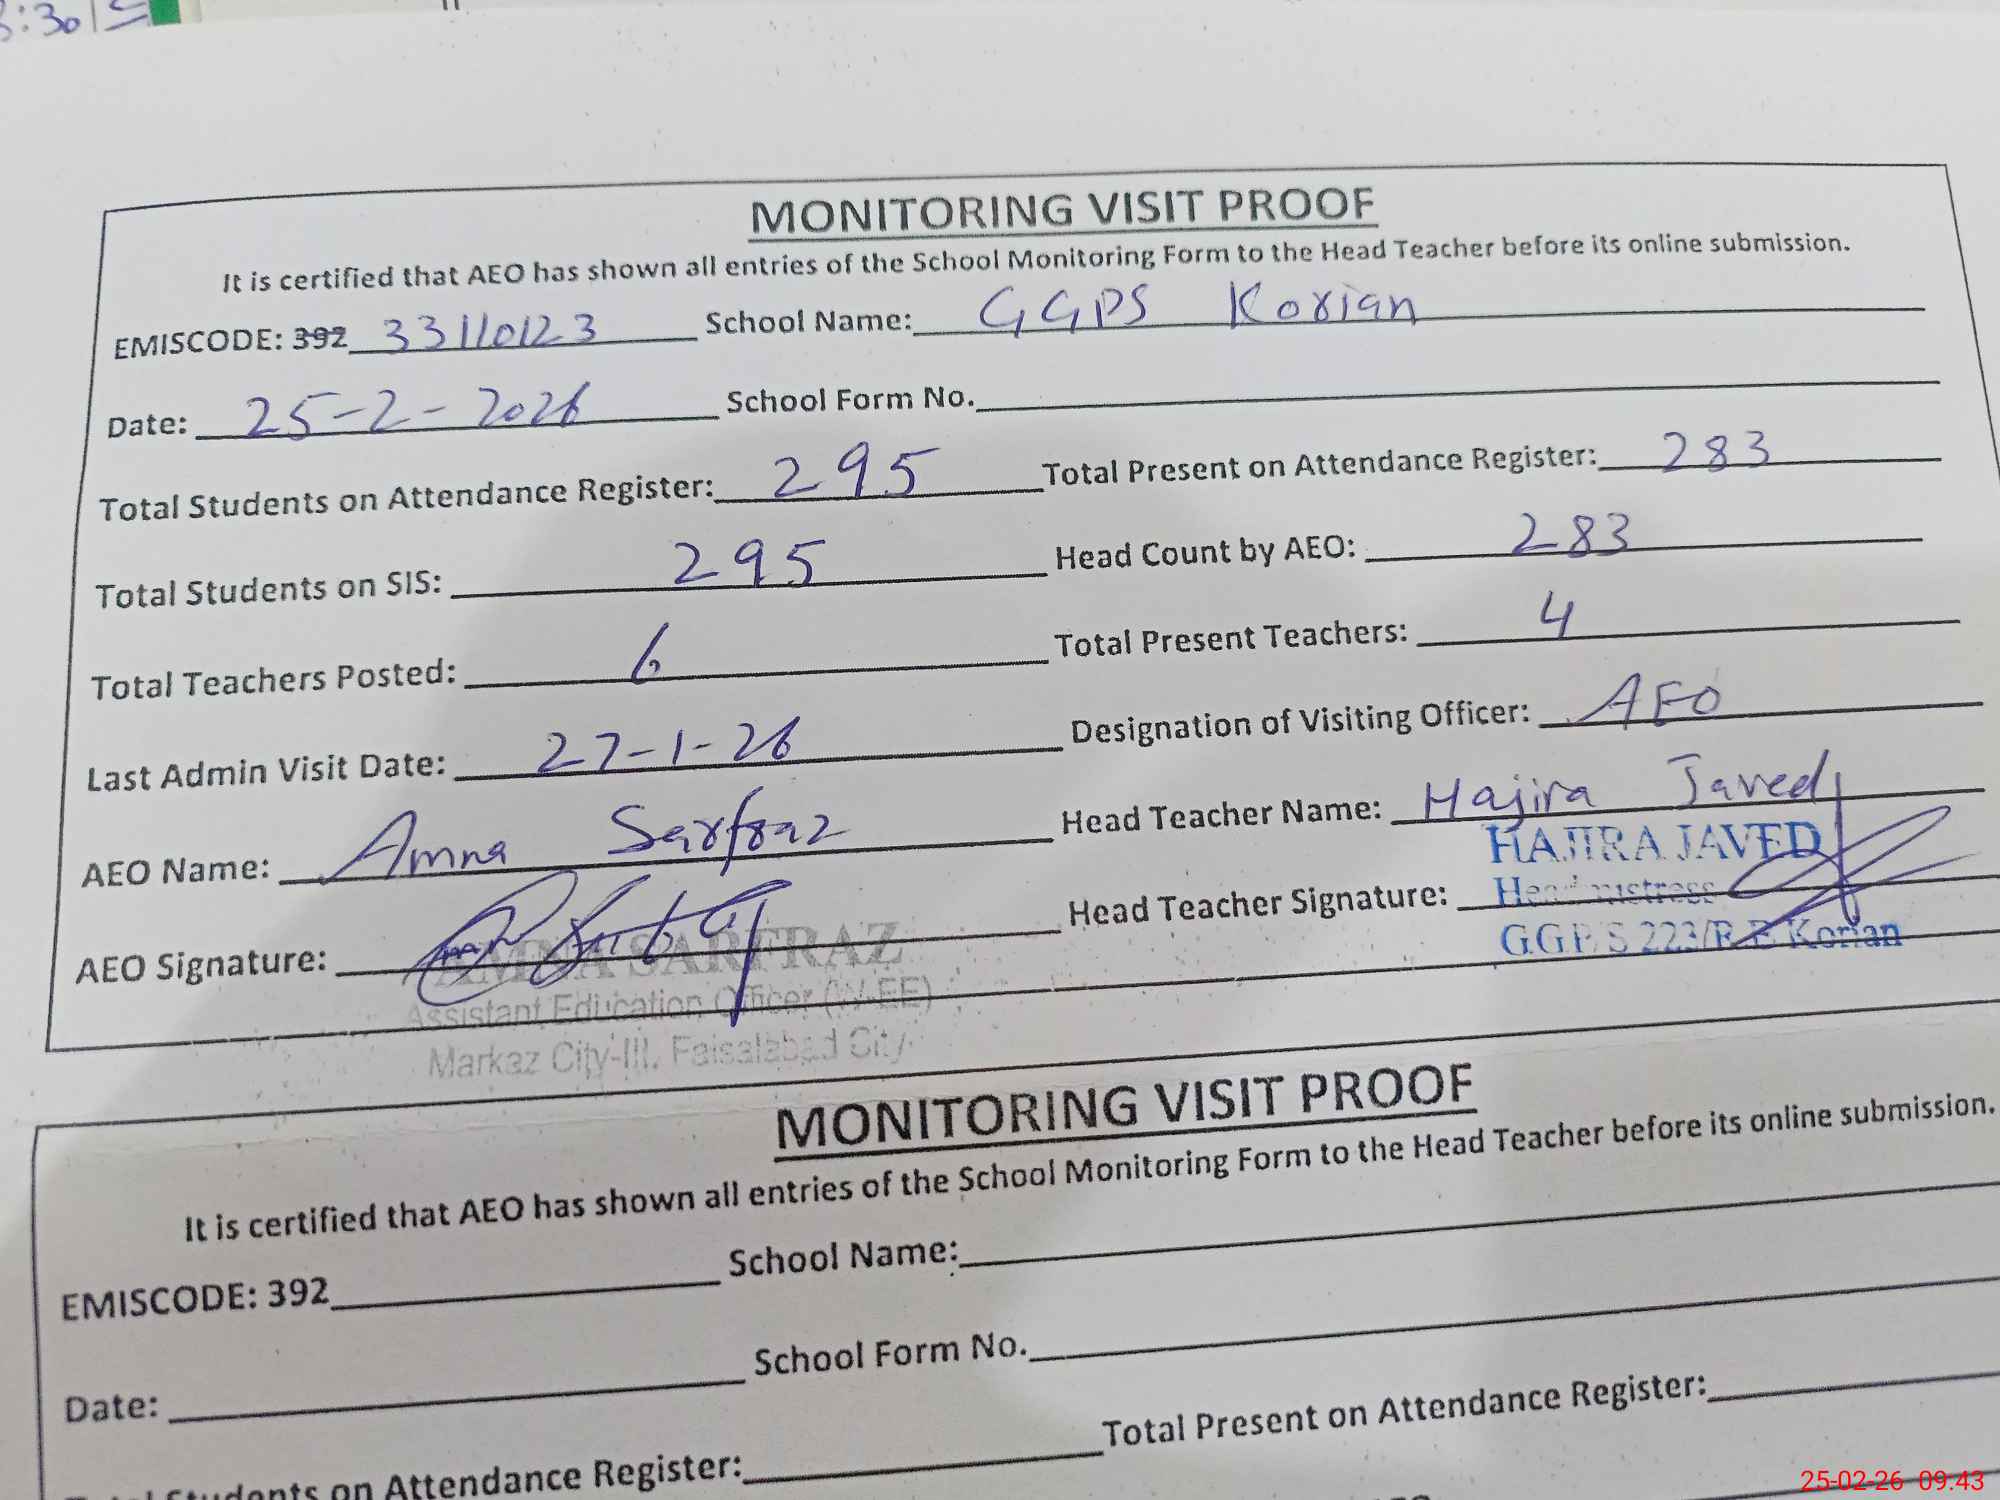 :30
MONITORING VISIT PROOF
It is certified that AEO has shown all entries of the School Monitoring Form to the Head Teacher before its online submission.
EMISCODE: 392 33110123 School Name: GGPS Korian
Date: 25-2-2026 School Form No.
Total Students on Attendance Register: 295 Total Present on Attendance Register: 283
Total Students on SIS: 295 Head Count by AEO: 283
Total Teachers Posted: 6 Total Present Teachers: 4
Last Admin Visit Date: 27-1-26 Designation of Visiting Officer: AEO
AEO Name: Amna Sarfraz Head Teacher Name: Hajira Javed
HAJIRA JAVED
AEO Signature: Head Teacher Signature: Headmistress
AMNA SARFRAZ G.G.P.S 223/R.B Korian
Assistant Education Officer (W-EE)
Markaz City-III, Faisalabad City
MONITORING VISIT PROOF
It is certified that AEO has shown all entries of the School Monitoring Form to the Head Teacher before its online submission.
EMISCODE: 392 School Name:
Date: School Form No.
Students on Attendance Register: Total Present on Attendance Register:
25-02-26 09:43